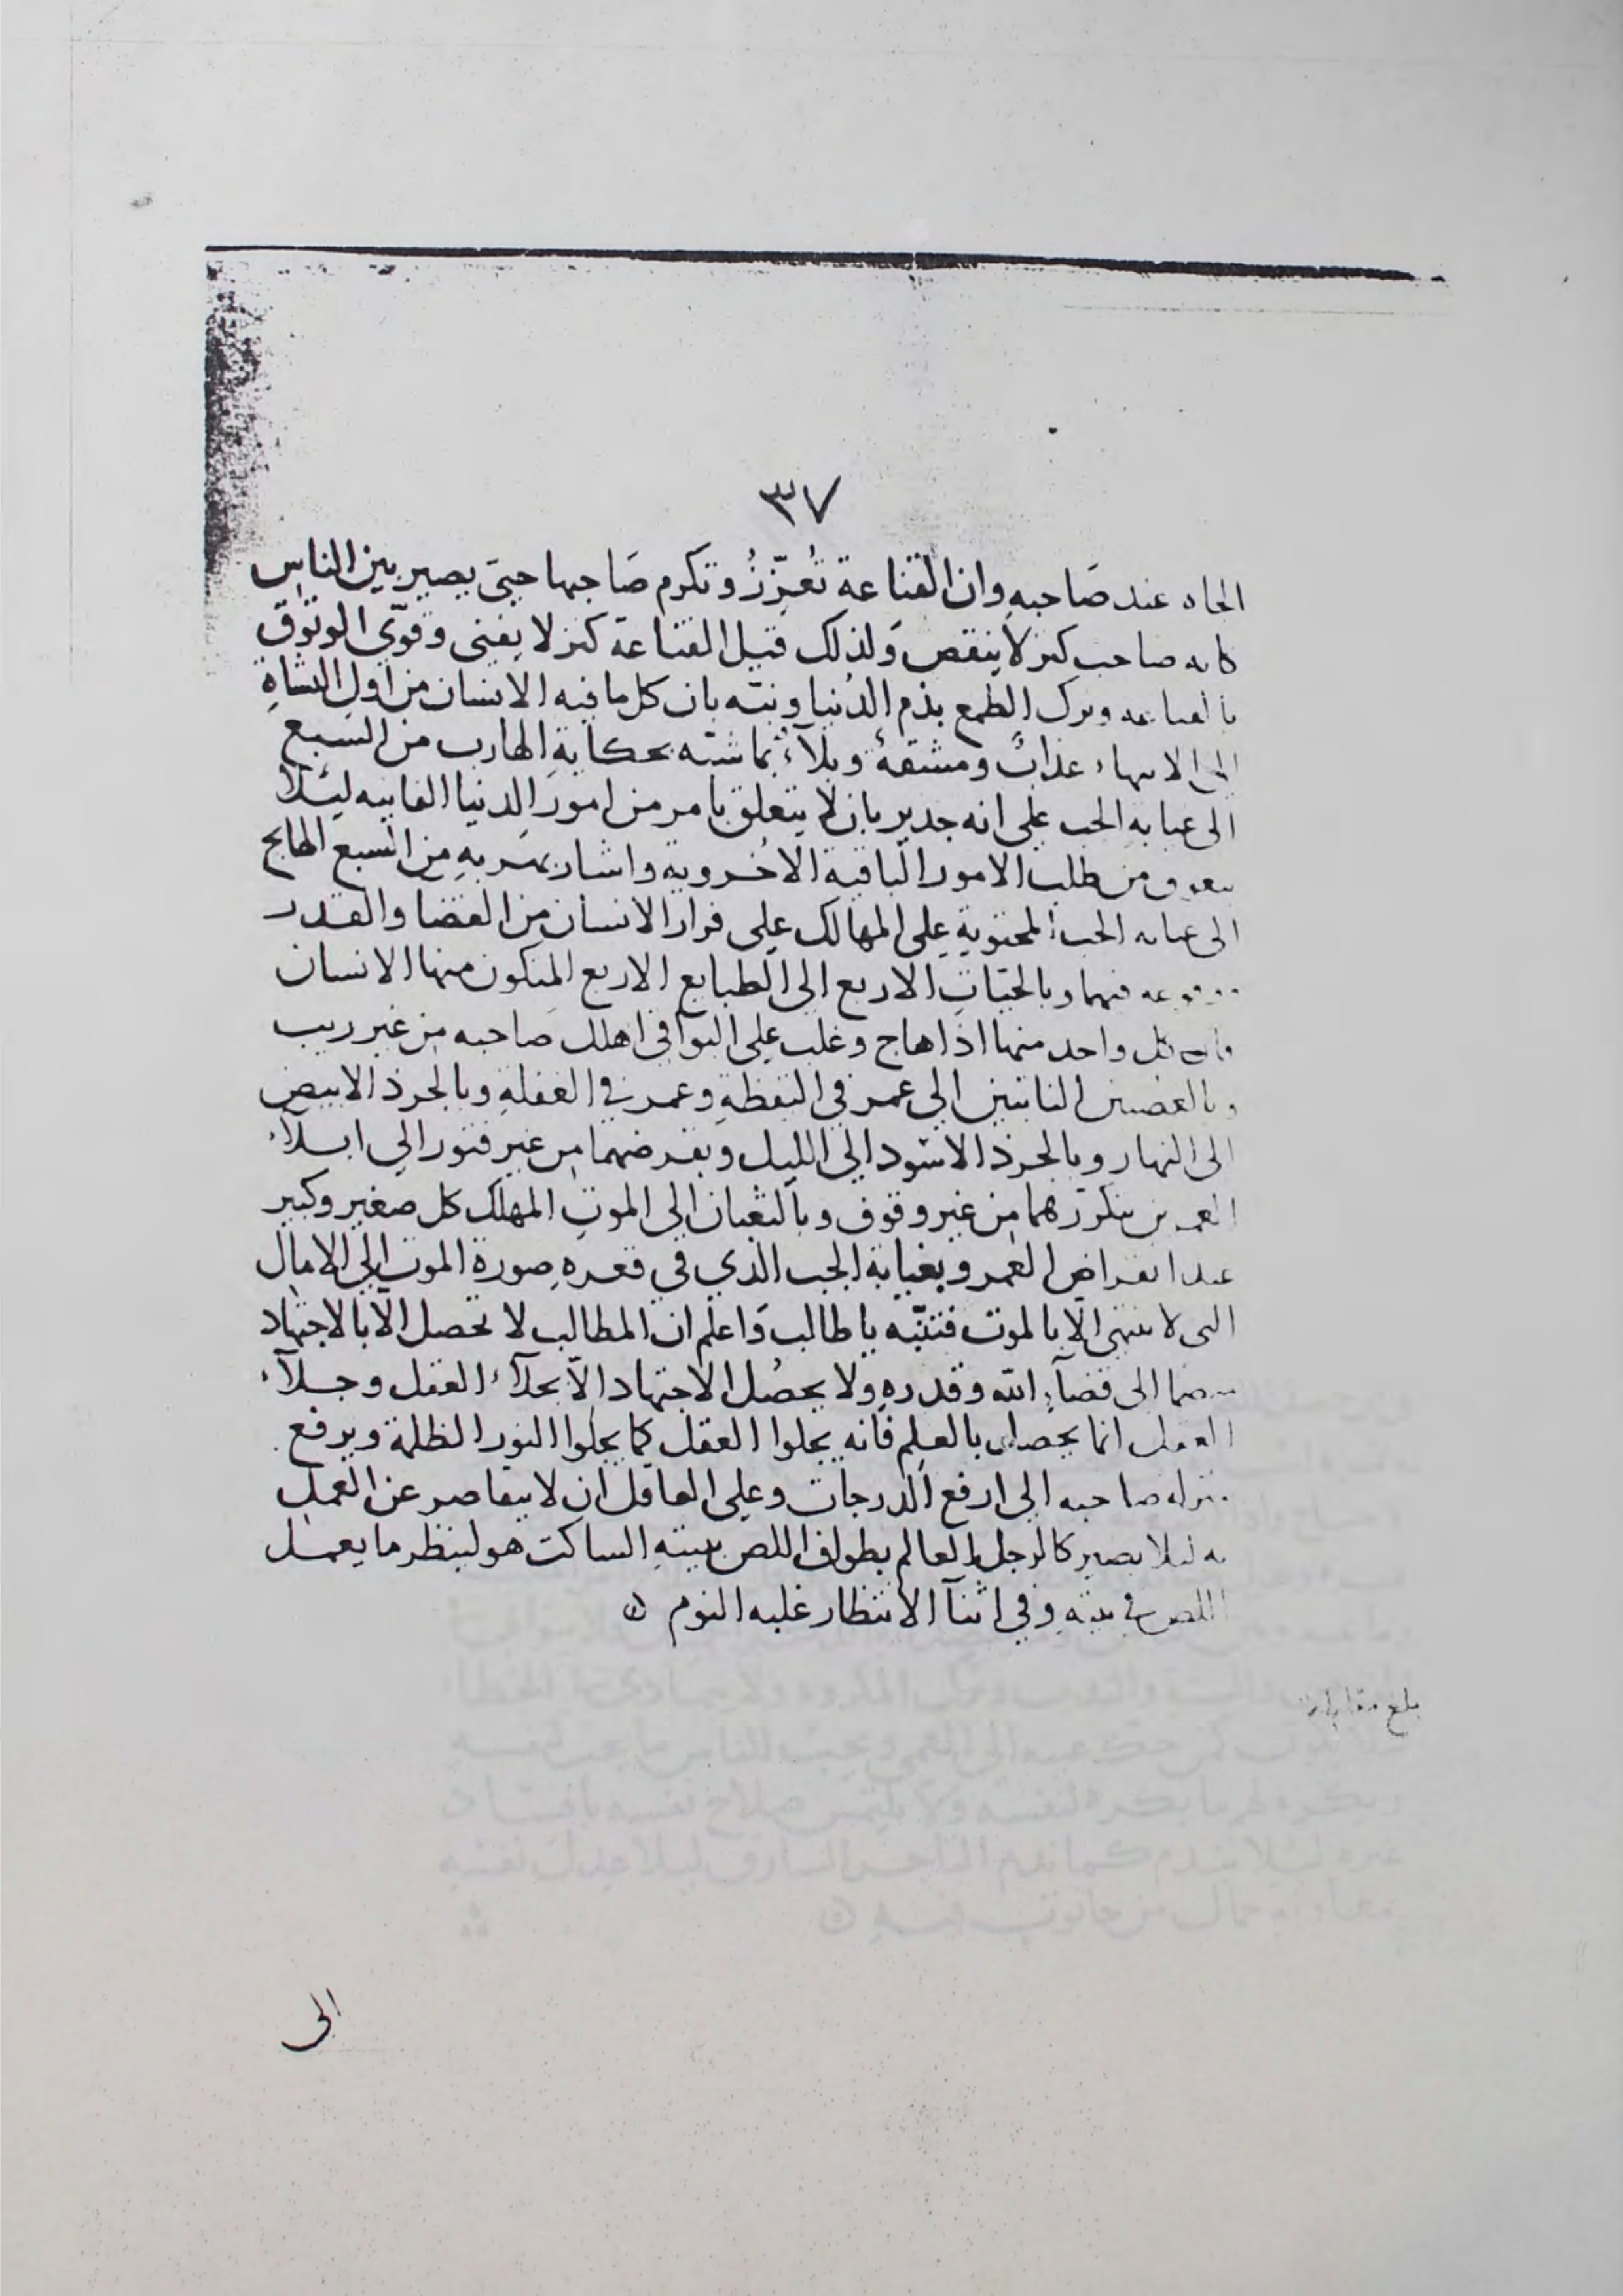 ٣٧
الجاه عند صَاحبهِ وان القناعة تُعزّزُ وتكرم صَاحبها حتى يصير بين الناس
كانه صاحب كنز لا ينقص وَلذلك قيل القناعة كنز لا يفنى وقوّي الوثوق
بالقناعة وترك الطمع بذم الدُنيا ونبّه بان كل ما فيه الانسان من اول النشاةِ
الى الانتهاء عذابٌ ومشقةٌ وبلآءٌ بما شبّه بحكايةِ الهارب من السبع
الى غيابةِ الجب على انه جدير بان لا يتعلق بامر من امور الدنيا الفانيه ليئلا
يتعوق من طلب الامور الباقية الاخروية واشار بهربهِ من السبع الهايج
الى غيابه الجب المحتويةِ على المهالك على فرار الانسان من القضا والقدر
ووقوعه فيهما وبالحيّاتِ الاربع الى الطبايع الاربع المتكون منها الانسان
فان كل واحد منها اذا هاج وغلب على البواقي اهلك صَاحبه من غير ريب
وبالغصنين النابتين الى عمر في اليقظةِ وعمر في الغفلةِ وبالجرذ الابيض
الى النهار وبالجرذ الاسود الى الليل وبقرضهما من غير فتور الى ابلآء
العمرين بتكررهما من غير وقوف وبالثعبان الى الموتِ المهلك كل صغير وكبير
عند انقراض العمر وبغيابة الجب الذي في قعرهِ صورة الموت الى الامال
التي لا تنتهي الّا بالموت فتنبّه يا طالب وَاعلم ان المطالب لا تحصل الّا بالاجتهاد
الى قضآءِ الله وقدرهِ ولا يحصُل الاجتهاد الّا بجلآء العقل وجلآء
العقل انما يحصل بالعلم فانه يجلوا العقل كما يجلوا النور الظلمة ويرفع
منزله صاحبه الى ارفع الدرجات وعلى العاقل ان لا يتقاصر عن العمل
به ليلا يصير كالرجل العالم بطواف اللص ببيتهِ الساكت هو لينظر ما يعمل
اللص في بيتهِ وفي اثنآ الانتظار غلبه النوم
بلغ مقابلة
الى